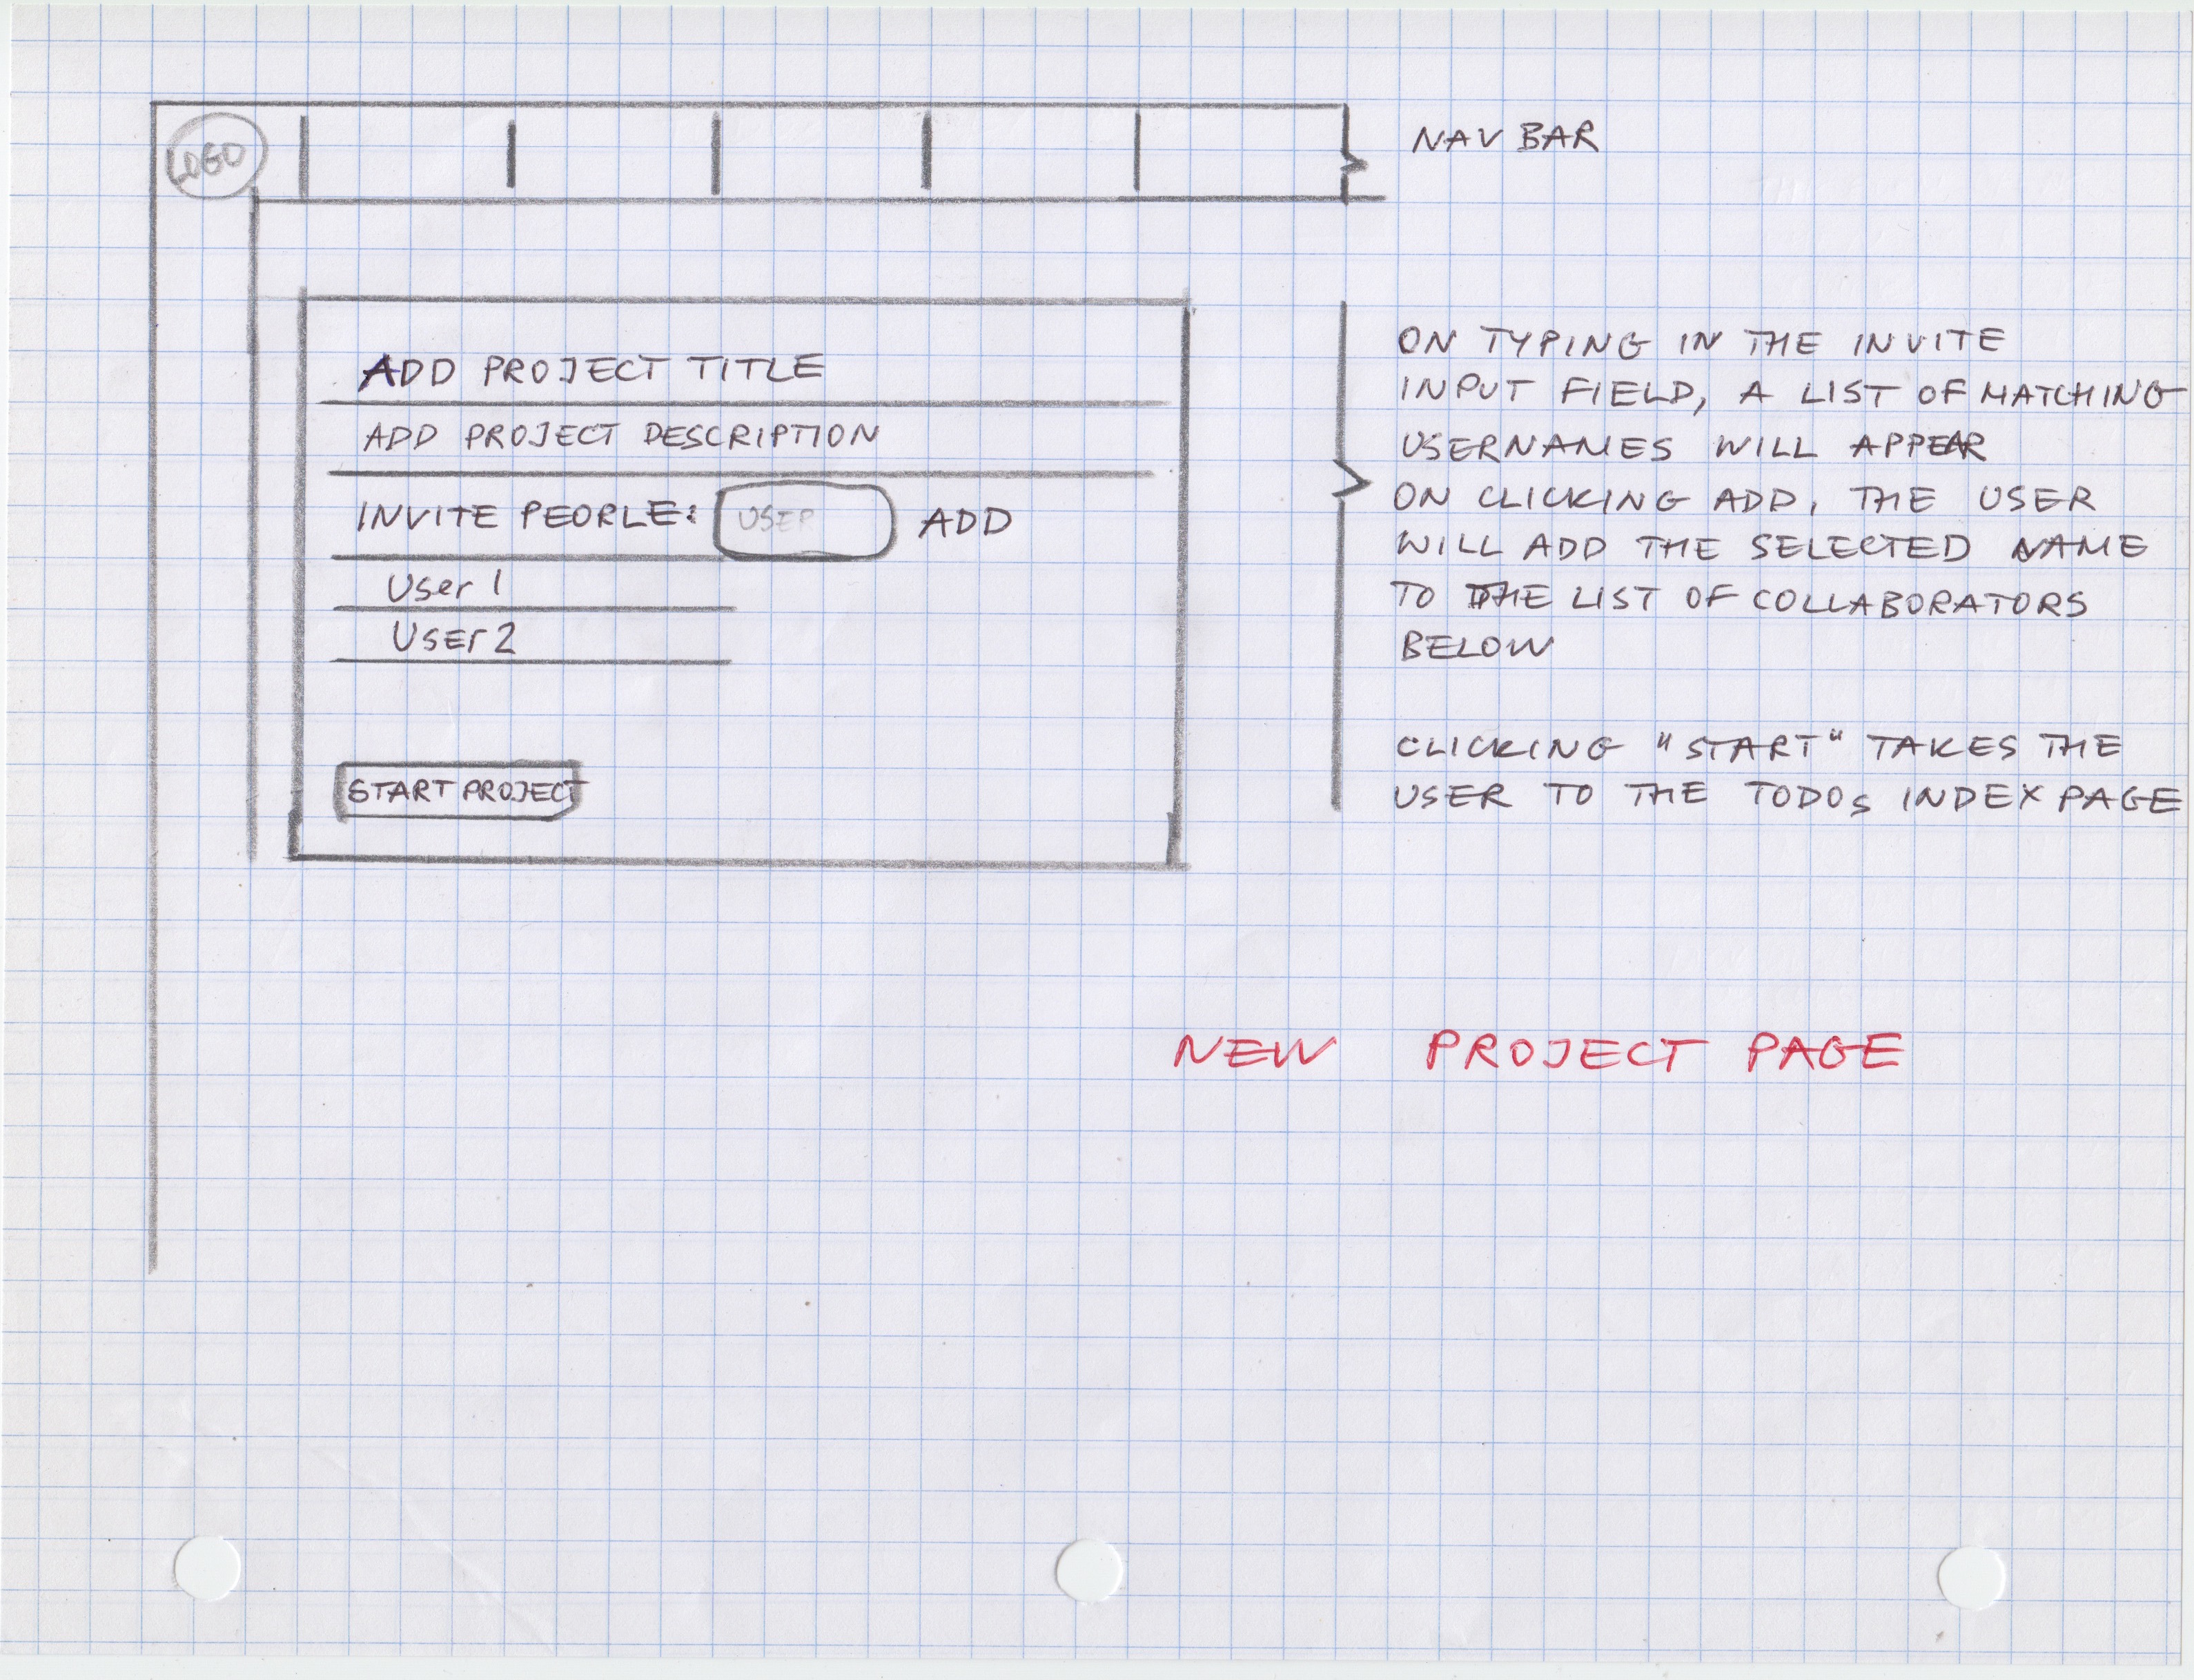 LOGO
NAV BAR
ADD PROJECT TITLE
ADD PROJECT DESCRIPTION
INVITE PEOPLE: USER ADD
User 1
User 2
START PROJECT
ON TYPING IN THE INVITE
INPUT FIELD, A LIST OF MATCHING
USERNAMES WILL APPEAR
ON CLICKING ADD, THE USER
WILL ADD THE SELECTED NAME
TO THE LIST OF COLLABORATORS
BELOW
CLICKING "START" TAKES THE
USER TO THE TODOs INDEX PAGE
NEW PROJECT PAGE